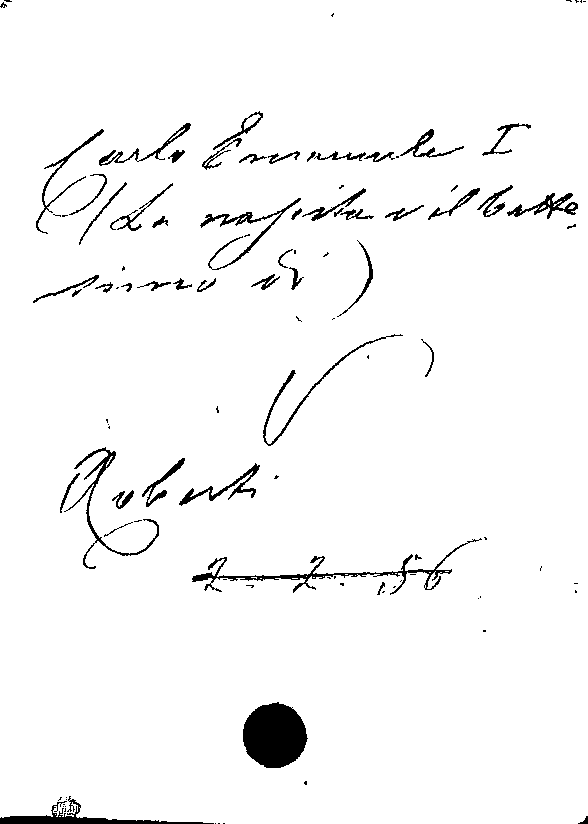 Carlo Emanuele I
(La nascita e il batte
simo di)
V
Roberti
2. 2. 56